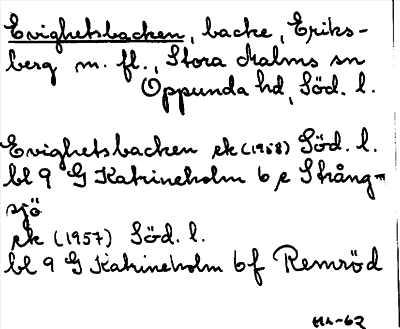 Evighetsbacken, backe, Eriks-
berg m. fl., Stora Malms sn
Oppunda hd, Söd. l.
Evighetsbacken ek (1958) Söd. l.
bl 9 G Katrineholm 6 e Strång-
sjö
ek (1957) Söd. l.
bl 9 G Katrineholm 6f Remröd
HA-62